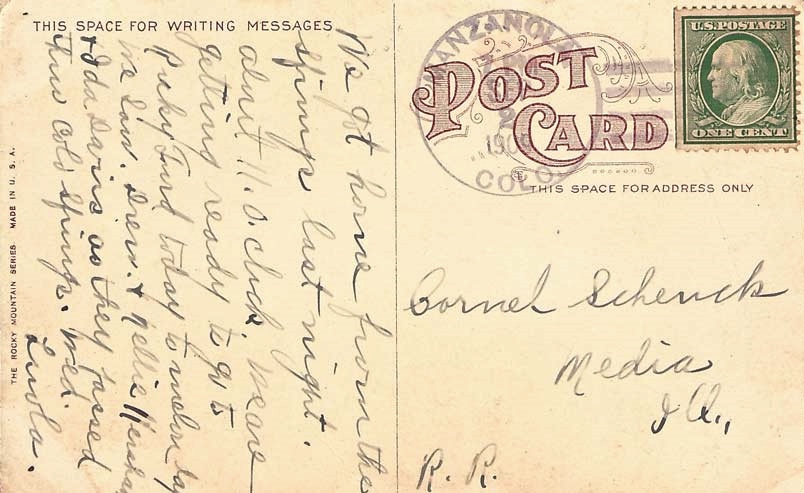 THIS SPACE FOR WRITING MESSAGES
We got home from the
springs last night.
about 11. o.clock. We are
getting ready to go to
Rocky Ford today to melon day
We saw. Drew. & Nellie
& Ida Davis as they passed
thru Colo Springs. Wed.
Luola.
THE ROCKY MOUNTAIN SERIES MADE IN U. S. A.
MANZANOLA
2
COLO.
POST
CARD
U.S. POSTAGE
ONE CENT
THIS SPACE FOR ADDRESS ONLY
Cornel Schenck
Media
Ill.,
R. R.